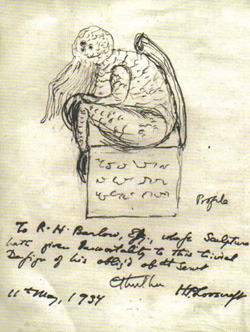 Profile
To R. H. Barlow, Esq., whose Sculpture
hath given Immortality to this trivial
Design of his oblig'd obt Servt
Cthulhu H P Lovecraft
11th May, 1934